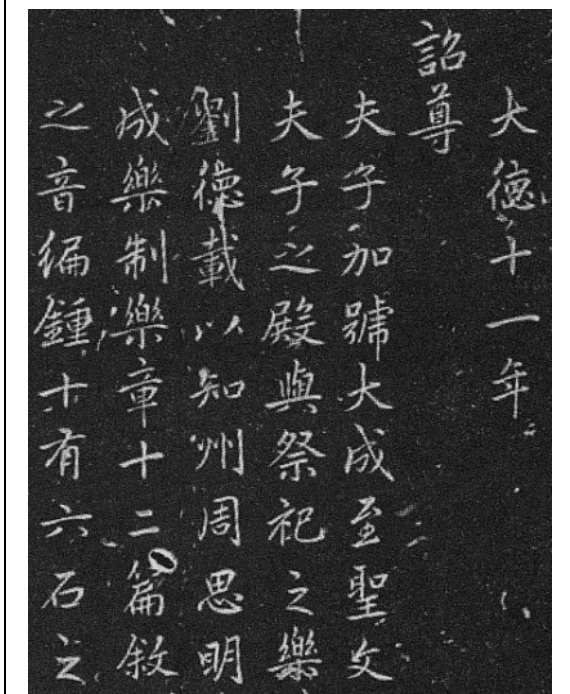 大德十一年
詔尊
夫子加號大成至聖文
夫子之殿與祭祀之樂
劉德載以知州周思明
成樂制樂章十二篇敘
之音編鍾十有六石之